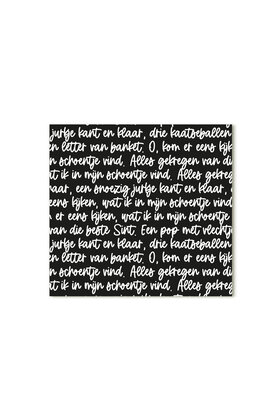 jurkje kant en klaar, drie kaatseballen
en letter van banket. O, kom er eens kijk
n schoentje vind. Alles gekregen van die
at ik in mijn schoentje vind. Alles gekr
aar, een snoezig jurkje kant en klaar, d
eens kijken, wat ik in mijn schoentje vin
m er eens kijken, wat ik in mijn schoent
van die beste Sint. Een pop met vlechtj
jurkje kant en klaar, drie kaatseballen
en letter van banket. O, kom er eens kijk
n schoentje vind. Alles gekregen van die
at ik in mijn schoentje vind. Alles gekr